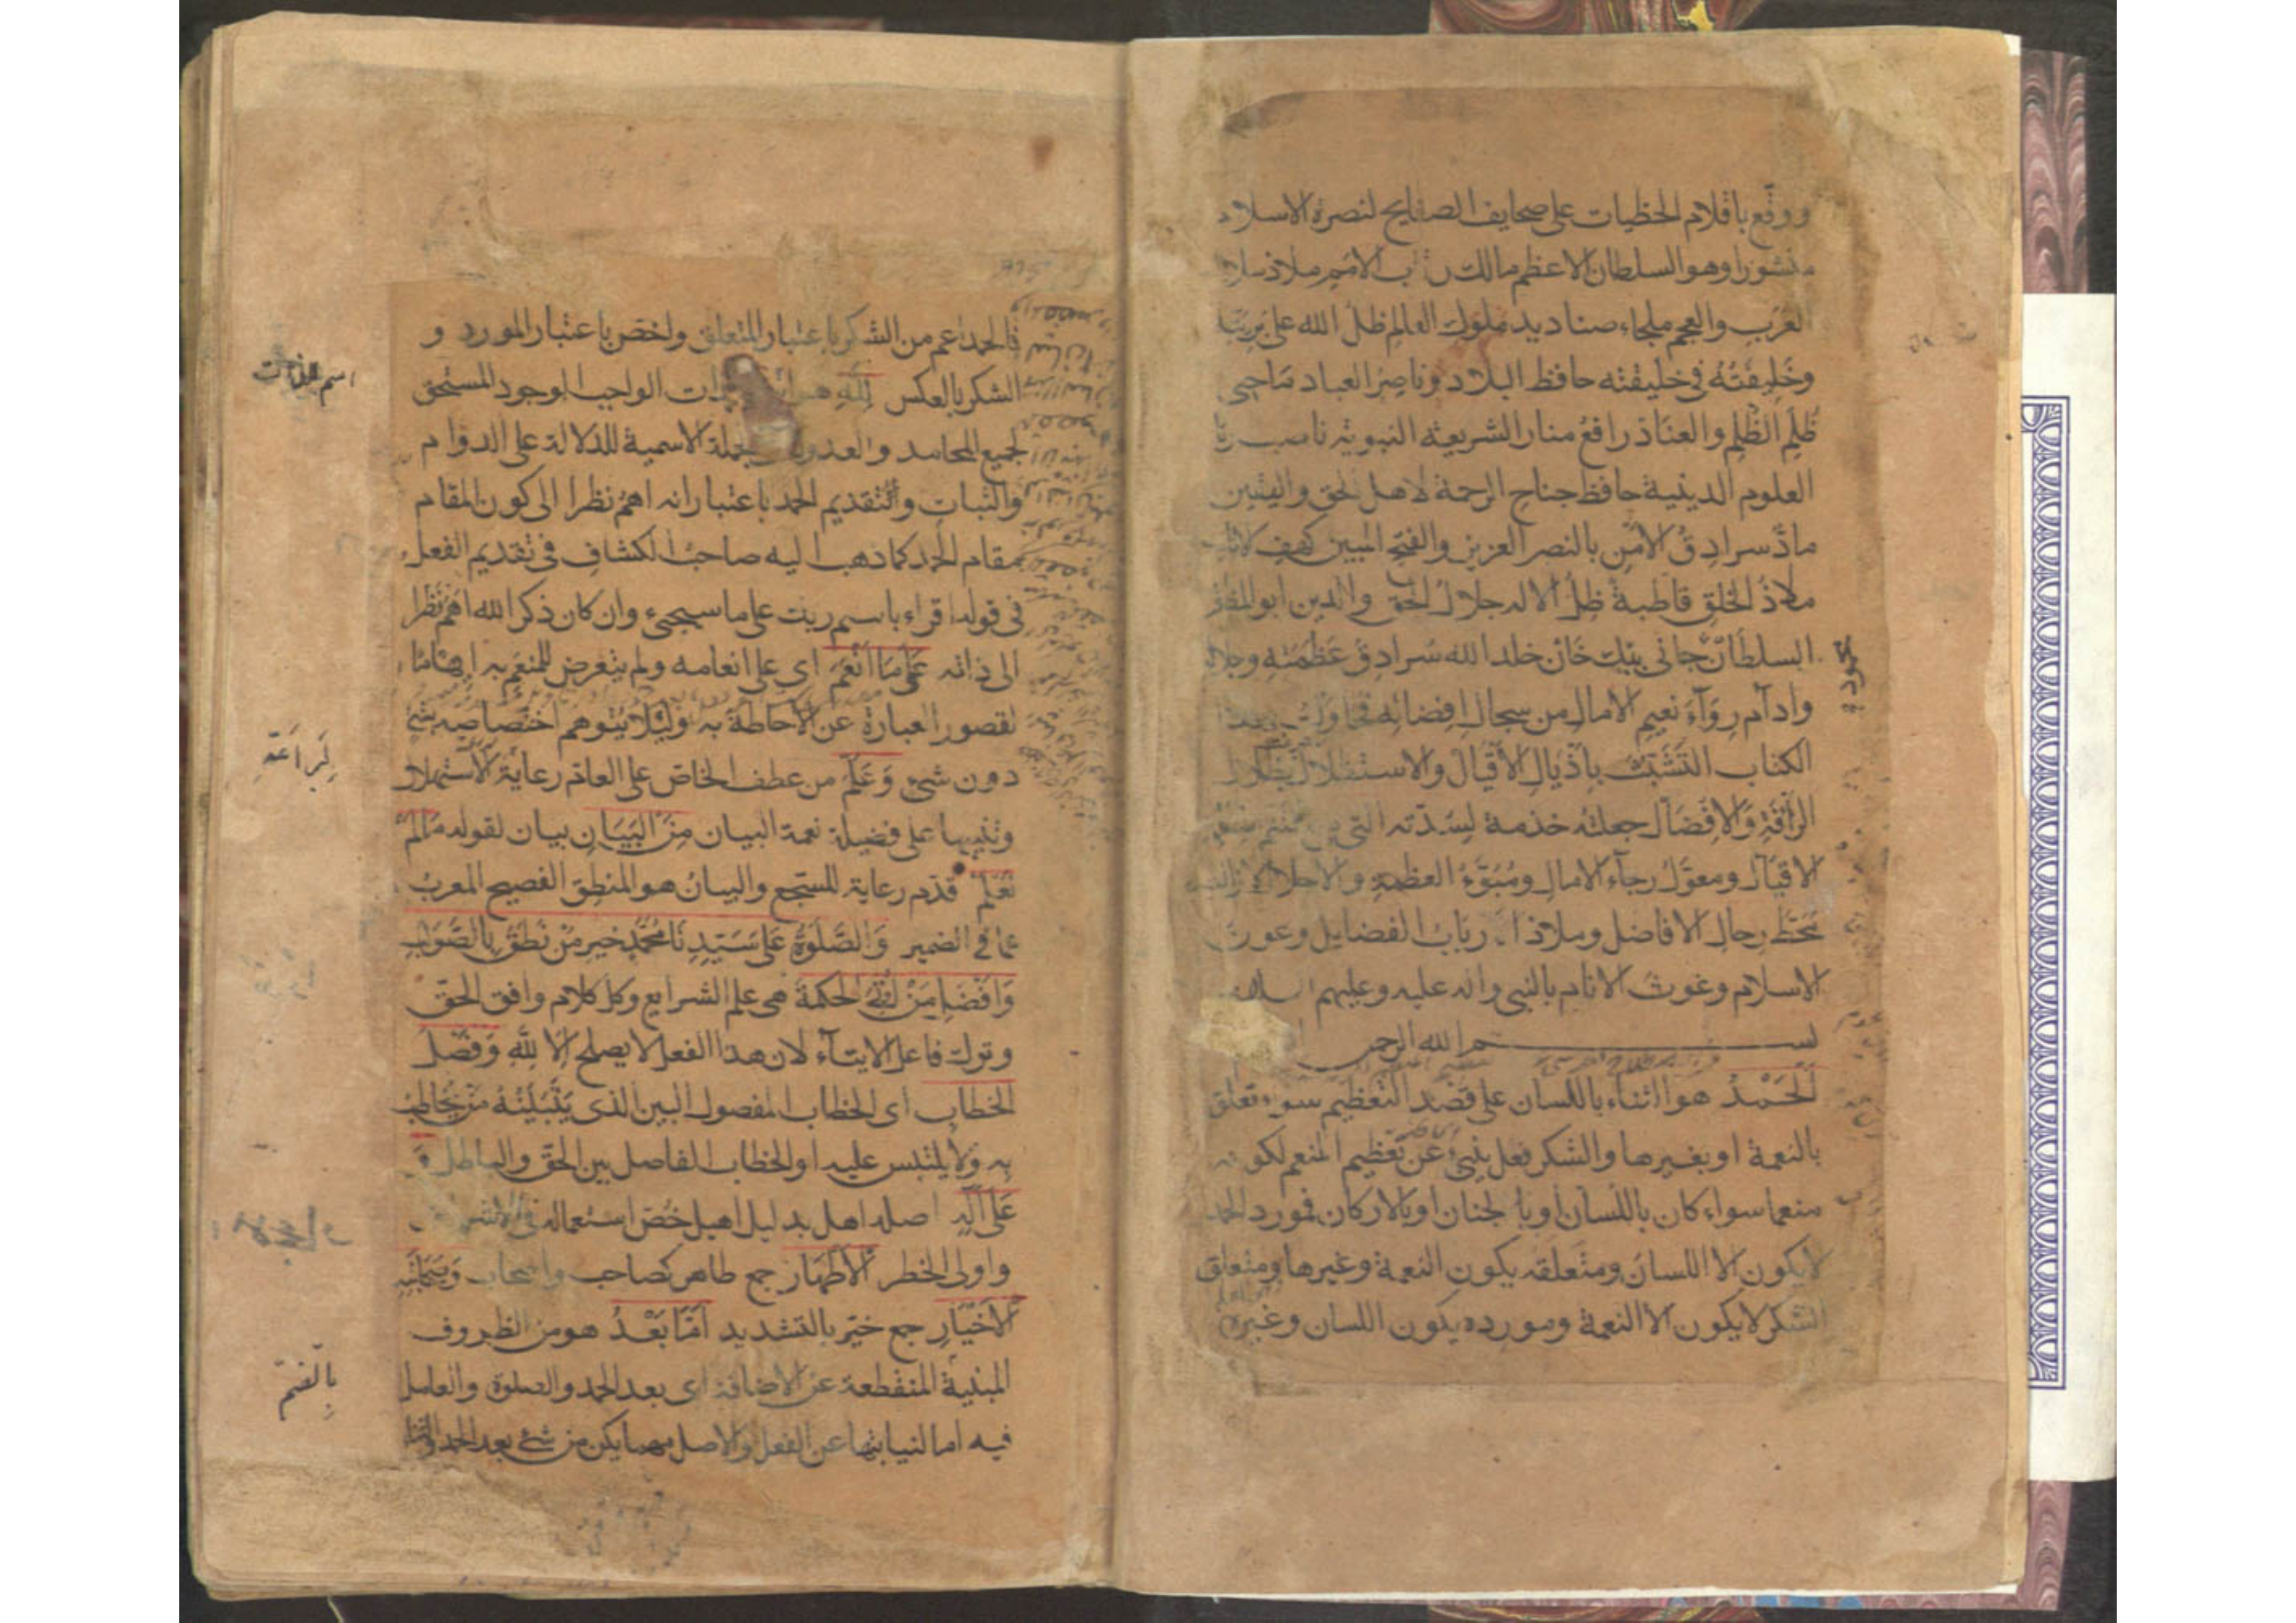 ووقع باقلام الخطيات على صحايف الصفايح لنصرة الاسلام
منشورا وهو السلطان الاعظم مالك رقاب الامم ملاذ سلاطين
العرب والعجم ملجاء صناديد ملوك العالم ظل الله على بريته
وخليفته في خليقته حافظ البلاد وناصر العباد ماحى
ظلم الظلم والعناد رافع منار الشريعة النبوية ناصب رايات
العلوم الدينية خافظ جناح الرحمة لاهل الحق واليقين
ماد سرادق الامن بالنصر العزيز والفتح المبين كهف الانام
ملاذ الخلق قاطبة ظل الاله جلال الحق والدين ابو المظفر
السلطان جانى بيك خان خلد الله سرادق عظمته وجلاله
وادام رواء نعيم الامال من سجال افضاله فحاولت بهذا
الكتاب التشبث باذيال الاقبال والاستظلال بظلال
الرافة والافضال جعلته خدمة لسدته التى هى ملتثم شفاه
الاقيال ومعول رجاء الامال ومبوء العظمة والاجلال لا زالت
محط رحال الافاضل وملاذ ارباب الفضايل وعون
الاسلام وغوث الانام بالنبى واله عليه وعليهم السلام
بسم الله الرحمن
الحمد هو الثناء باللسان على قصد التعظيم سواء تعلق
بالنعمة او بغيرها والشكر فعل ينبئ عن تعظيم المنعم لكونه
منعما سواء كان باللسان او بالجنان او بالاركان فمورد الحمد
لا يكون الا اللسان ومتعلقه يكون النعمة وغيرها ومتعلق
الشكر لا يكون الا النعمة ومورده يكون اللسان وغيره
فالحمد اعم من الشكر باعتبار المتعلق واخص باعتبار المورد و
الشكر بالعكس لله هو اسم للذات الواجب الوجود المستحق
لجميع المحامد والعدول الى الجملة الاسمية للدلالة على الدوام
والثبات والتقديم الحمد باعتبار انه اهم نظرا الى كون المقام
مقام الحمد كما ذهب اليه صاحب الكشاف فى تقديم الفعل
فى قوله اقراء باسم ربك على ما سيجىء وان كان ذكر الله اهم نظرا
الى ذاته على ما انعم اى على انعامه ولم يتعرض للمنعم به ايهاما
لقصور العبارة عن الاحاطة به ولئلا يتوهم اختصاصه بشئ
دون شئ وعلم من عطف الخاص على العام رعاية لبراعة الاستهلال
وتنبيها على فضيلة نعمة البيان من البيان بيان لقوله ما لم
نعلم قدم رعاية للسجع والبيان هو المنطق الفصيح المعرب
عما فى الضمير والصلوة على سيدنا محمد خير من نطق بالصواب
وافضل من اوتى الحكمة هى علم الشرايع وكل كلام وافق الحق
وترك فاعل الايتاء لان هذا الفعل لا يصلح الا لله وفصل
الخطاب اى الخطاب المفصول البين الذى يتبينه من يخاطب
به ولا يلتبس عليه او الخطاب الفاصل بين الحق والباطل و
على آله اصله اهل بدليل اهيل خص استعماله فى الاشراف
واولى الخطر الاطهار جمع طاهر كصاحب واصحاب وصحابته
الاخيار جمع خير بالتشديد اما بعد هو من الظروف
المبنية المنقطعة عن الاضافة اى بعد الحمد والصلوة والعامل
فيه اما لنيابتها عن الفعل والاصل مهما يكن من شئ بعد الحمد والثناء
اسم للذات
لبراعة
بالضم